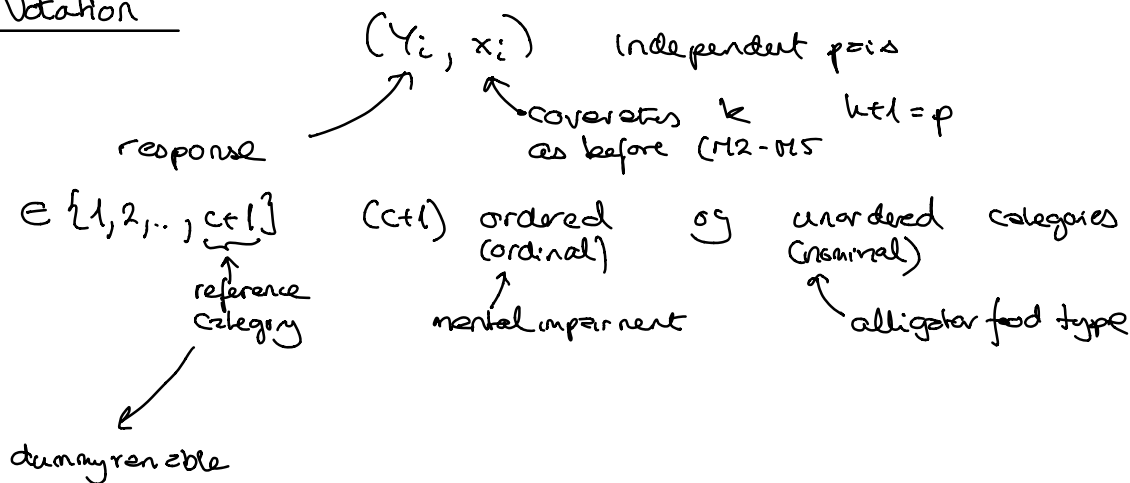 Notation
(Yi, xi) independent pairs
covariates k k+1 = p
response as before (M2-M5
∈ {1,2,.., c+1} (c+1) ordered og unordered categories
(ordinal) (nominal)
reference
category mental impairment alligator food type
dummyvariable